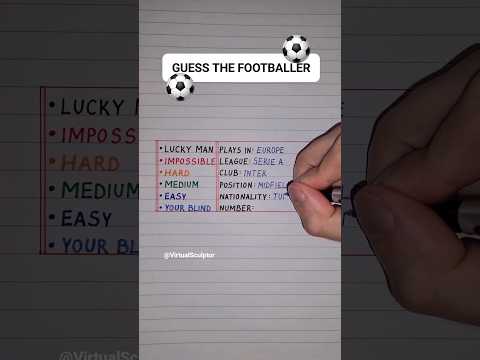 GUESS THE FOOTBALLER
• LUCKY MAN PLAYS IN: EUROPE
• IMPOSSIBLE LEAGUE: SERIE A
• HARD CLUB: INTER
• MEDIUM POSITION: MIDFIEL
• EASY NATIONALITY: TU
• YOUR BLIND NUMBER:
@VirtualSculptor
• LUCKY MAN
• IMPOSS
• HARD
• MEDIUM
• EASY
• YOUR BL
@VirtualSculp